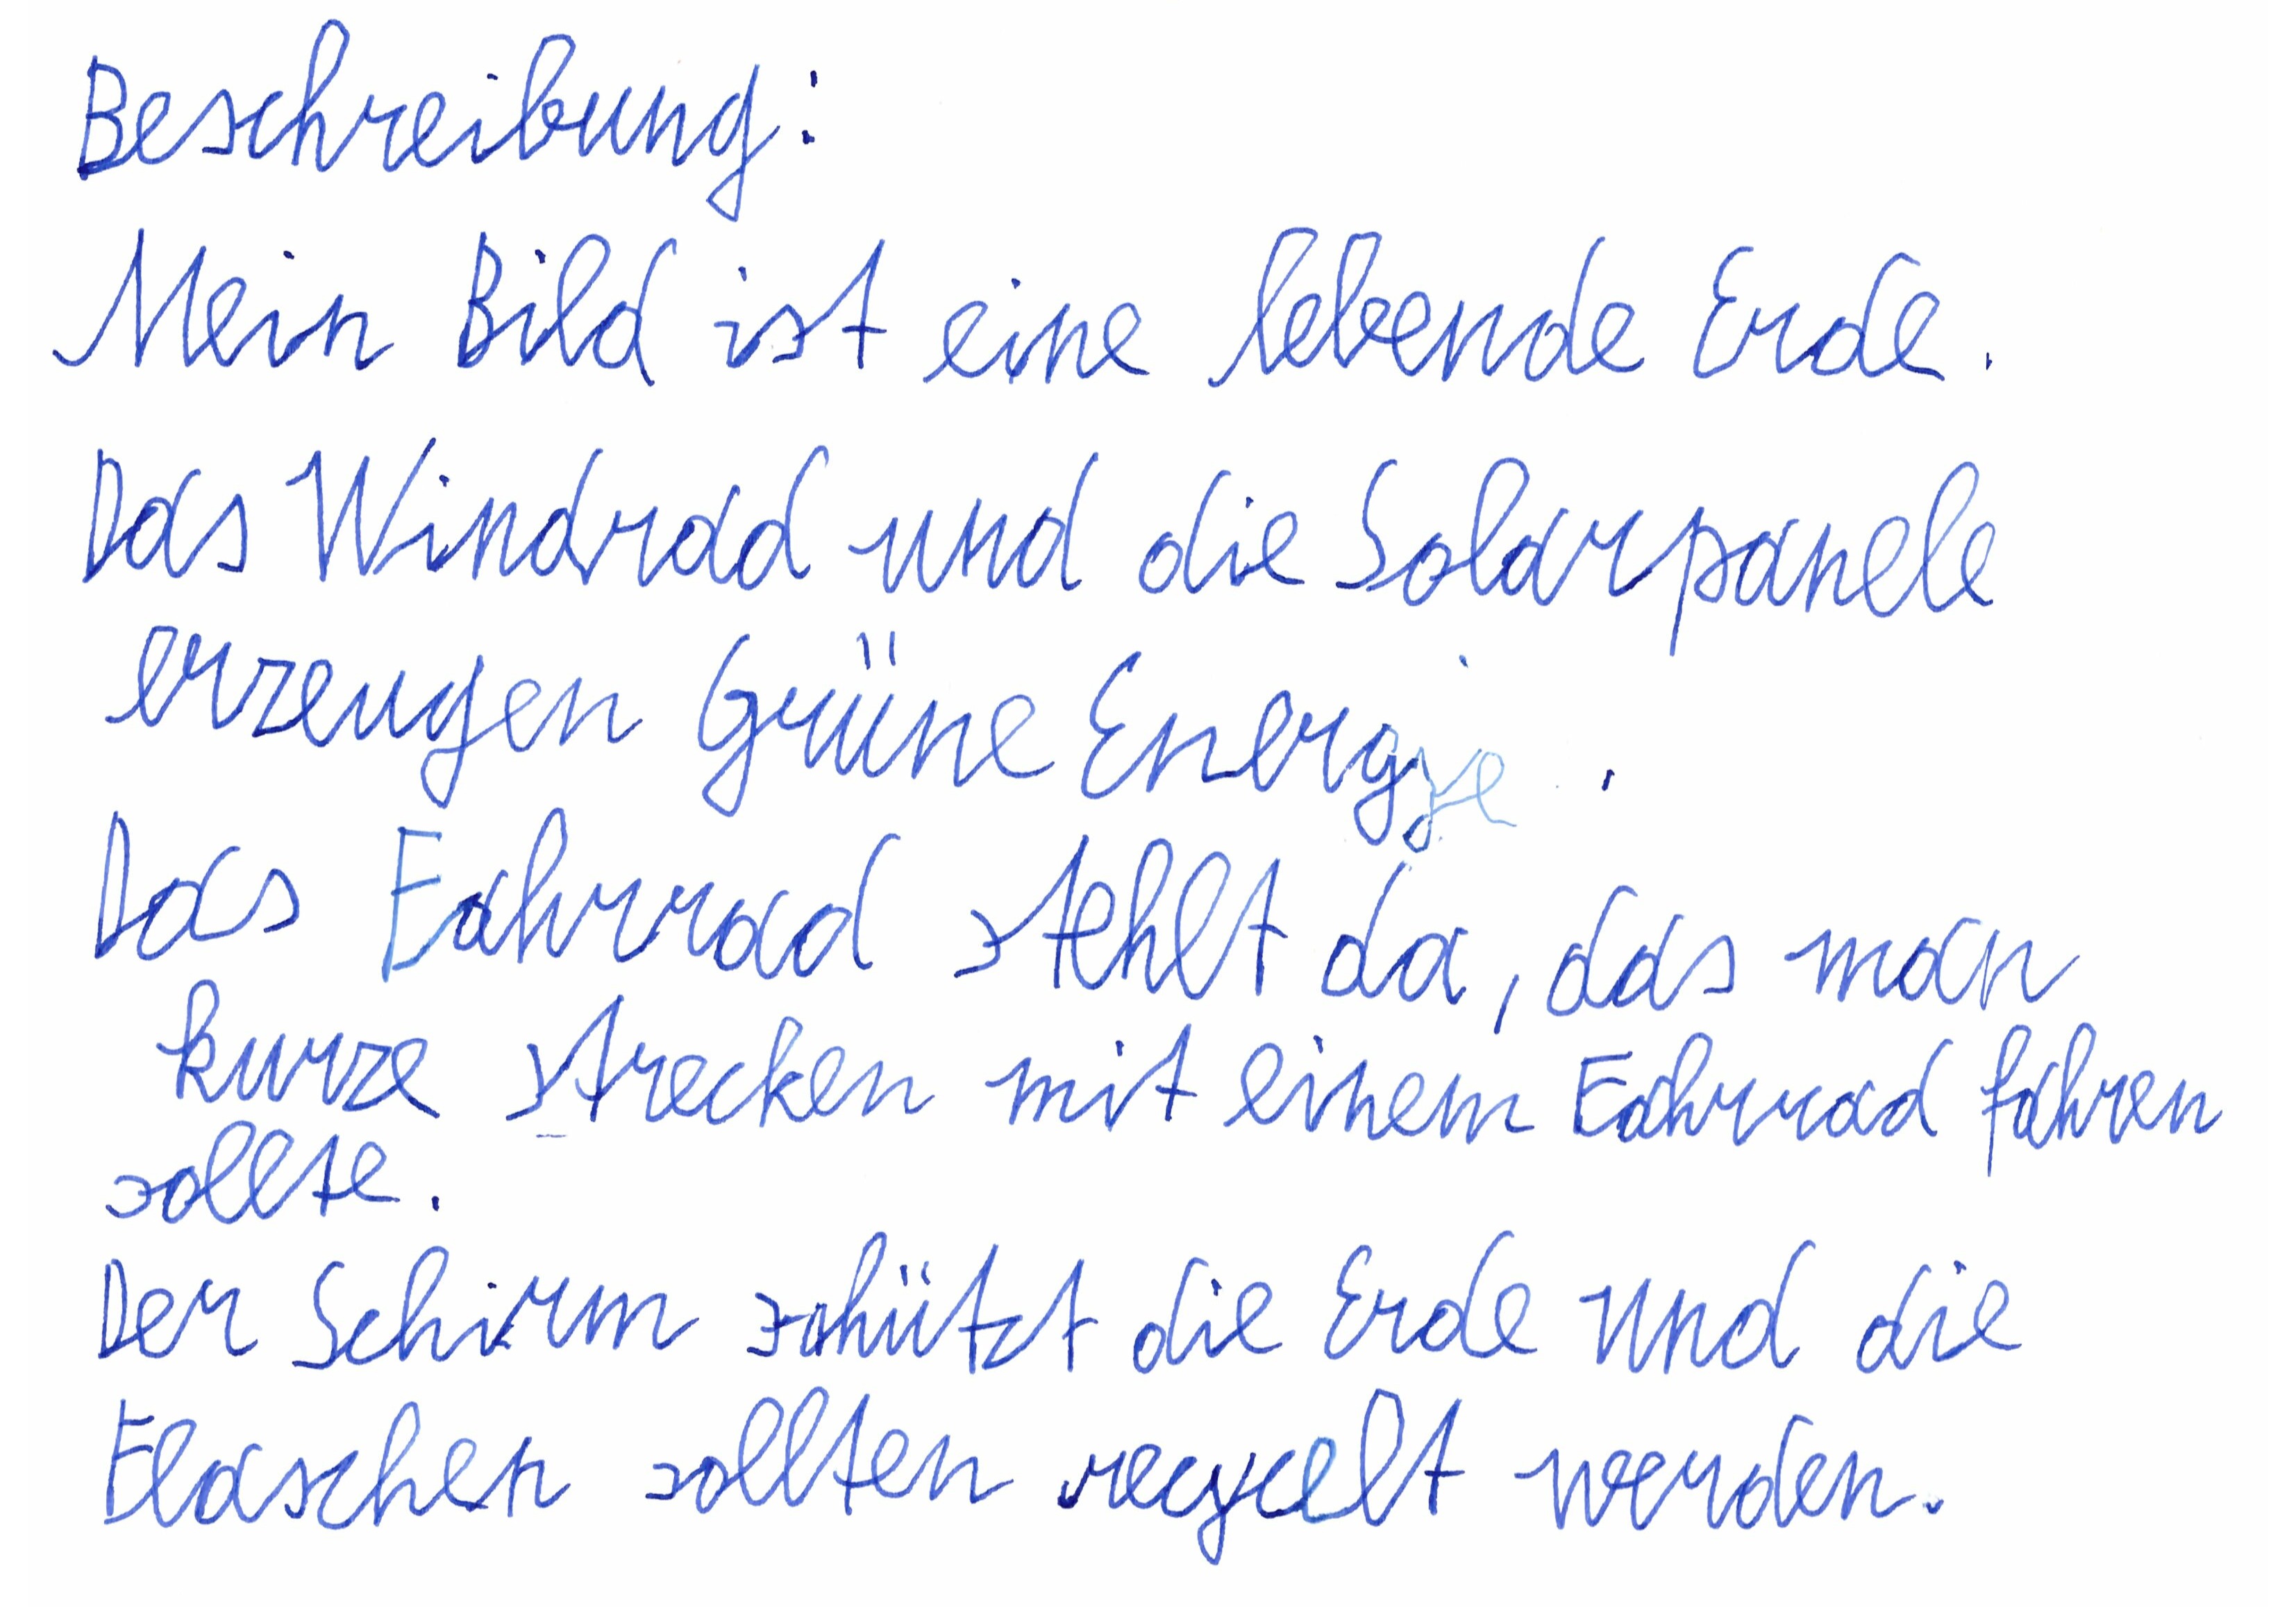 Beschreibung:
Mein Bild ist eine lebende Erde.
Das Windrad und die Solarpanele
erzeugen Grüne Energie.
Das Fahrrad stehlt da, das man
kurze strecken mit einem Fahrrad fahren
sollte.
Der Schirm schützt die Erde und die
Flaschen sollten recycelt werden.